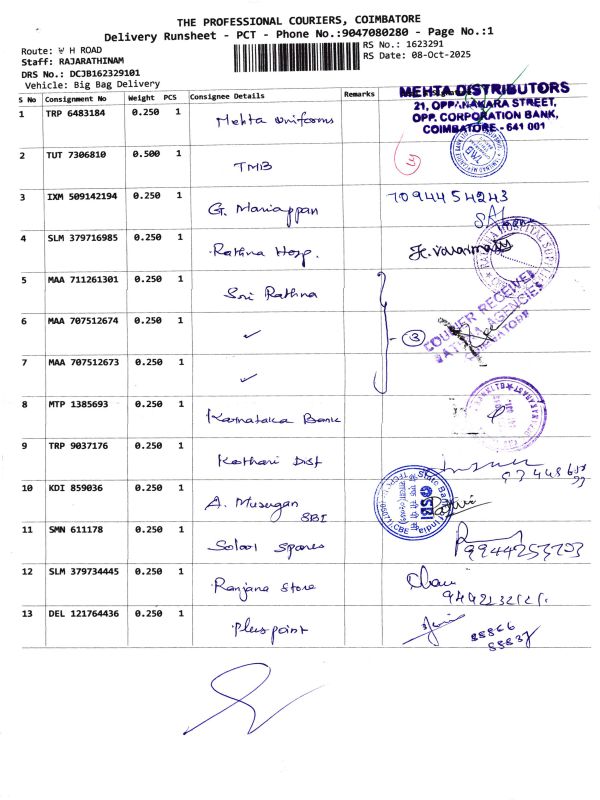 THE PROFESSIONAL COURIERS, COIMBATORE
Delivery Runsheet - PCT - Phone No.:9047080280 - Page No.:1
Route: V H ROAD
RS No.: 1623291
Staff: RAJARATHINAM
RS Date: 08-Oct-2025
DRS No.: DCJB162329101
Vehicle: Big Bag Delivery
S No Consignment No Weight PCS Consignee Details Remarks
MEHTA DISTRIBUTORS
21, OPPANAKARA STREET,
OPP. CORPORATION BANK,
COIMBATORE - 641 001
1 TRP 6483184 0.250 1 Mehta Uniforms
2 TUT 7306810 0.500 1 TMB
3 IXM 509142194 0.250 1 G. Mariappan 7094454243
4 SLM 379716985 0.250 1 Rathna Hosp.
5 MAA 711261301 0.250 1 Sri Rathna
COURIER RECEIVED
6 MAA 707512674 0.250 1 ✓ 3
7 MAA 707512673 0.250 1 ✓
8 MTP 1385693 0.250 1 Karnataka Bank
9 TRP 9037176 0.250 1 Kothari Dist
10 KDI 859036 0.250 1 A. Murugan
SBI
State Bank
SBI
11 SMN 611178 0.250 1 Spares
9944253203
12 SLM 379734445 0.250 1 Ranjana Store
13 DEL 121764436 0.250 1 Pluspoint
88866
88837